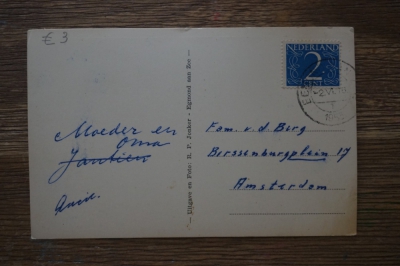 € 3
NEDERLAND
2
CENT
Moeder en
Oma
Jantien
Uitgave en Foto: R. P. Jonker - Egmond aan Zee -
Fam. v.d Berg
Berssenburgplein 17
Amsterdam